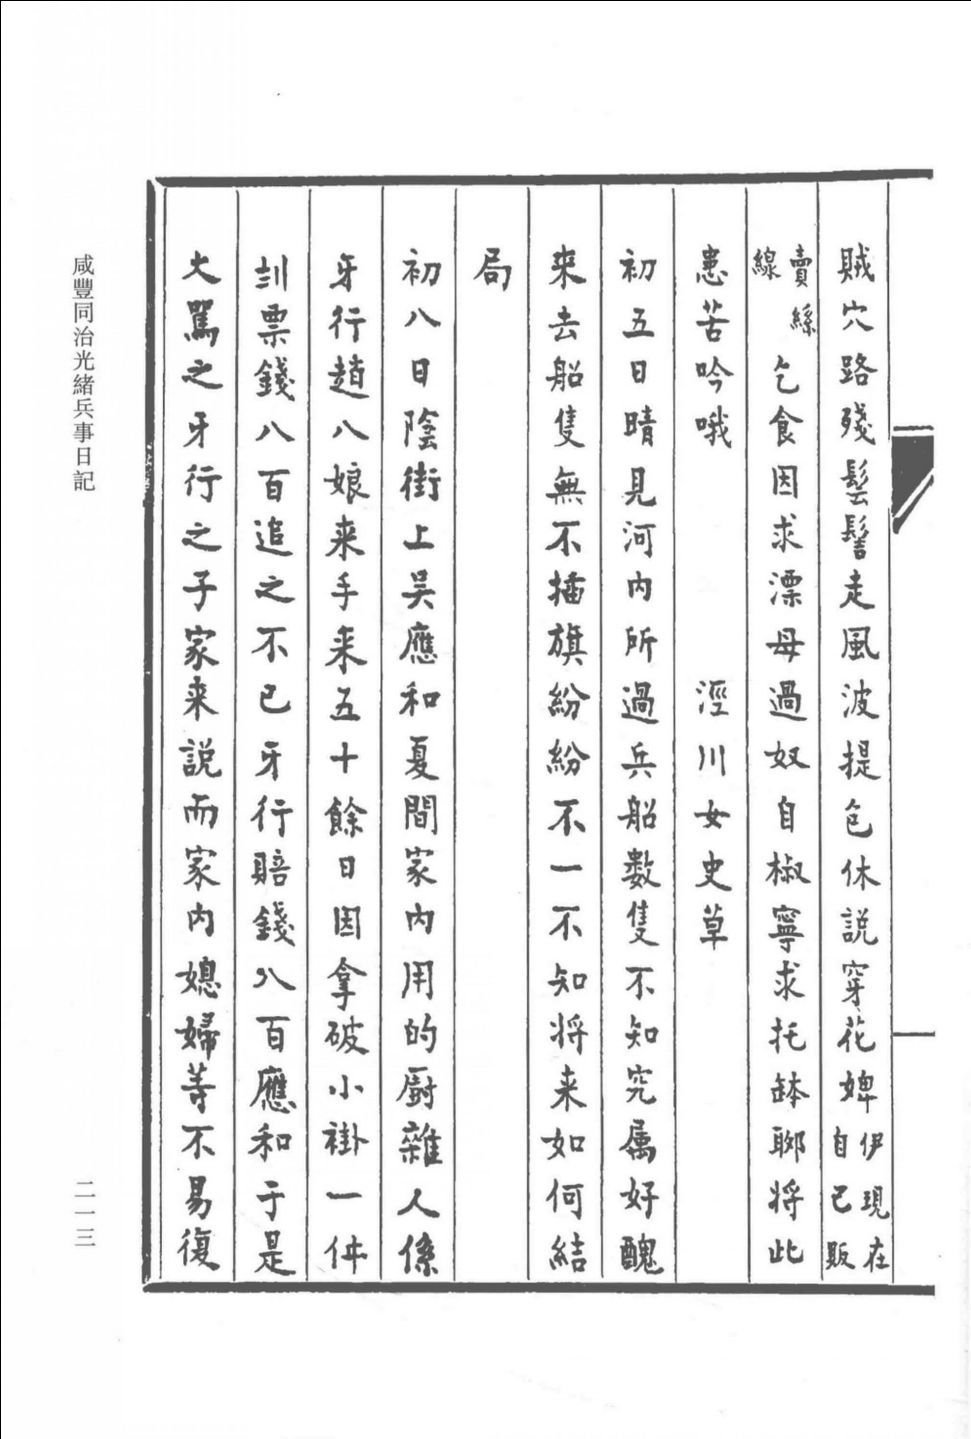 賊穴路殘髻髻走風波提包休説穿花婢伊現在自己販
賣絲線乞食因求漂母過奴自椒寧求托缽聊將此
患苦吟哦　涇川女史草
初五日晴見河內所過兵船數隻不知究属好醜
来去船隻無不插旗紛紛不一不知将来如何結
局
初八日陰街上吴應和夏間家內用的厨雜人係
牙行趙八娘来手来五十餘日因拿破小褂一件
訓票錢八百追之不已牙行賠錢八百應和于是
大駡之牙行之子家来説而家内媳婦等不易復
咸豐同治光緒兵事日記
二一三